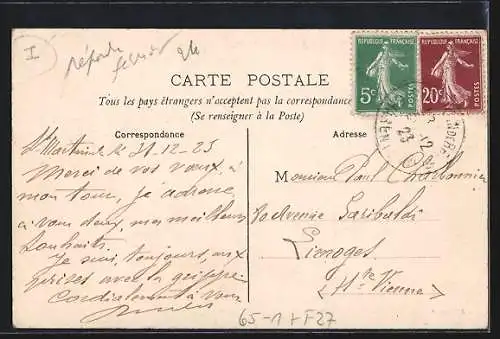 I
réponde
fevrier 24
RÉPUBLIQUE FRANÇAISE
5c
POSTES
RÉPUBLIQUE FRANÇAISE
20c
POSTES
CARTE POSTALE
Tous les pays étrangers n'acceptent pas la correspondance
(Se renseigner à la Poste)
Correspondance
31-12-23
Merci de vos vœux, à
mon tour, je adresse
à vous deux, mes meilleurs
souhaits.
Je suis, toujours, aux
prises avec la grippe
Cordialement à vous
Adresse
Monsieur Paul Charbonnier
Avenue Garibaldi
Limoges
(Hte Vienne)
23
12
65-1 + F27